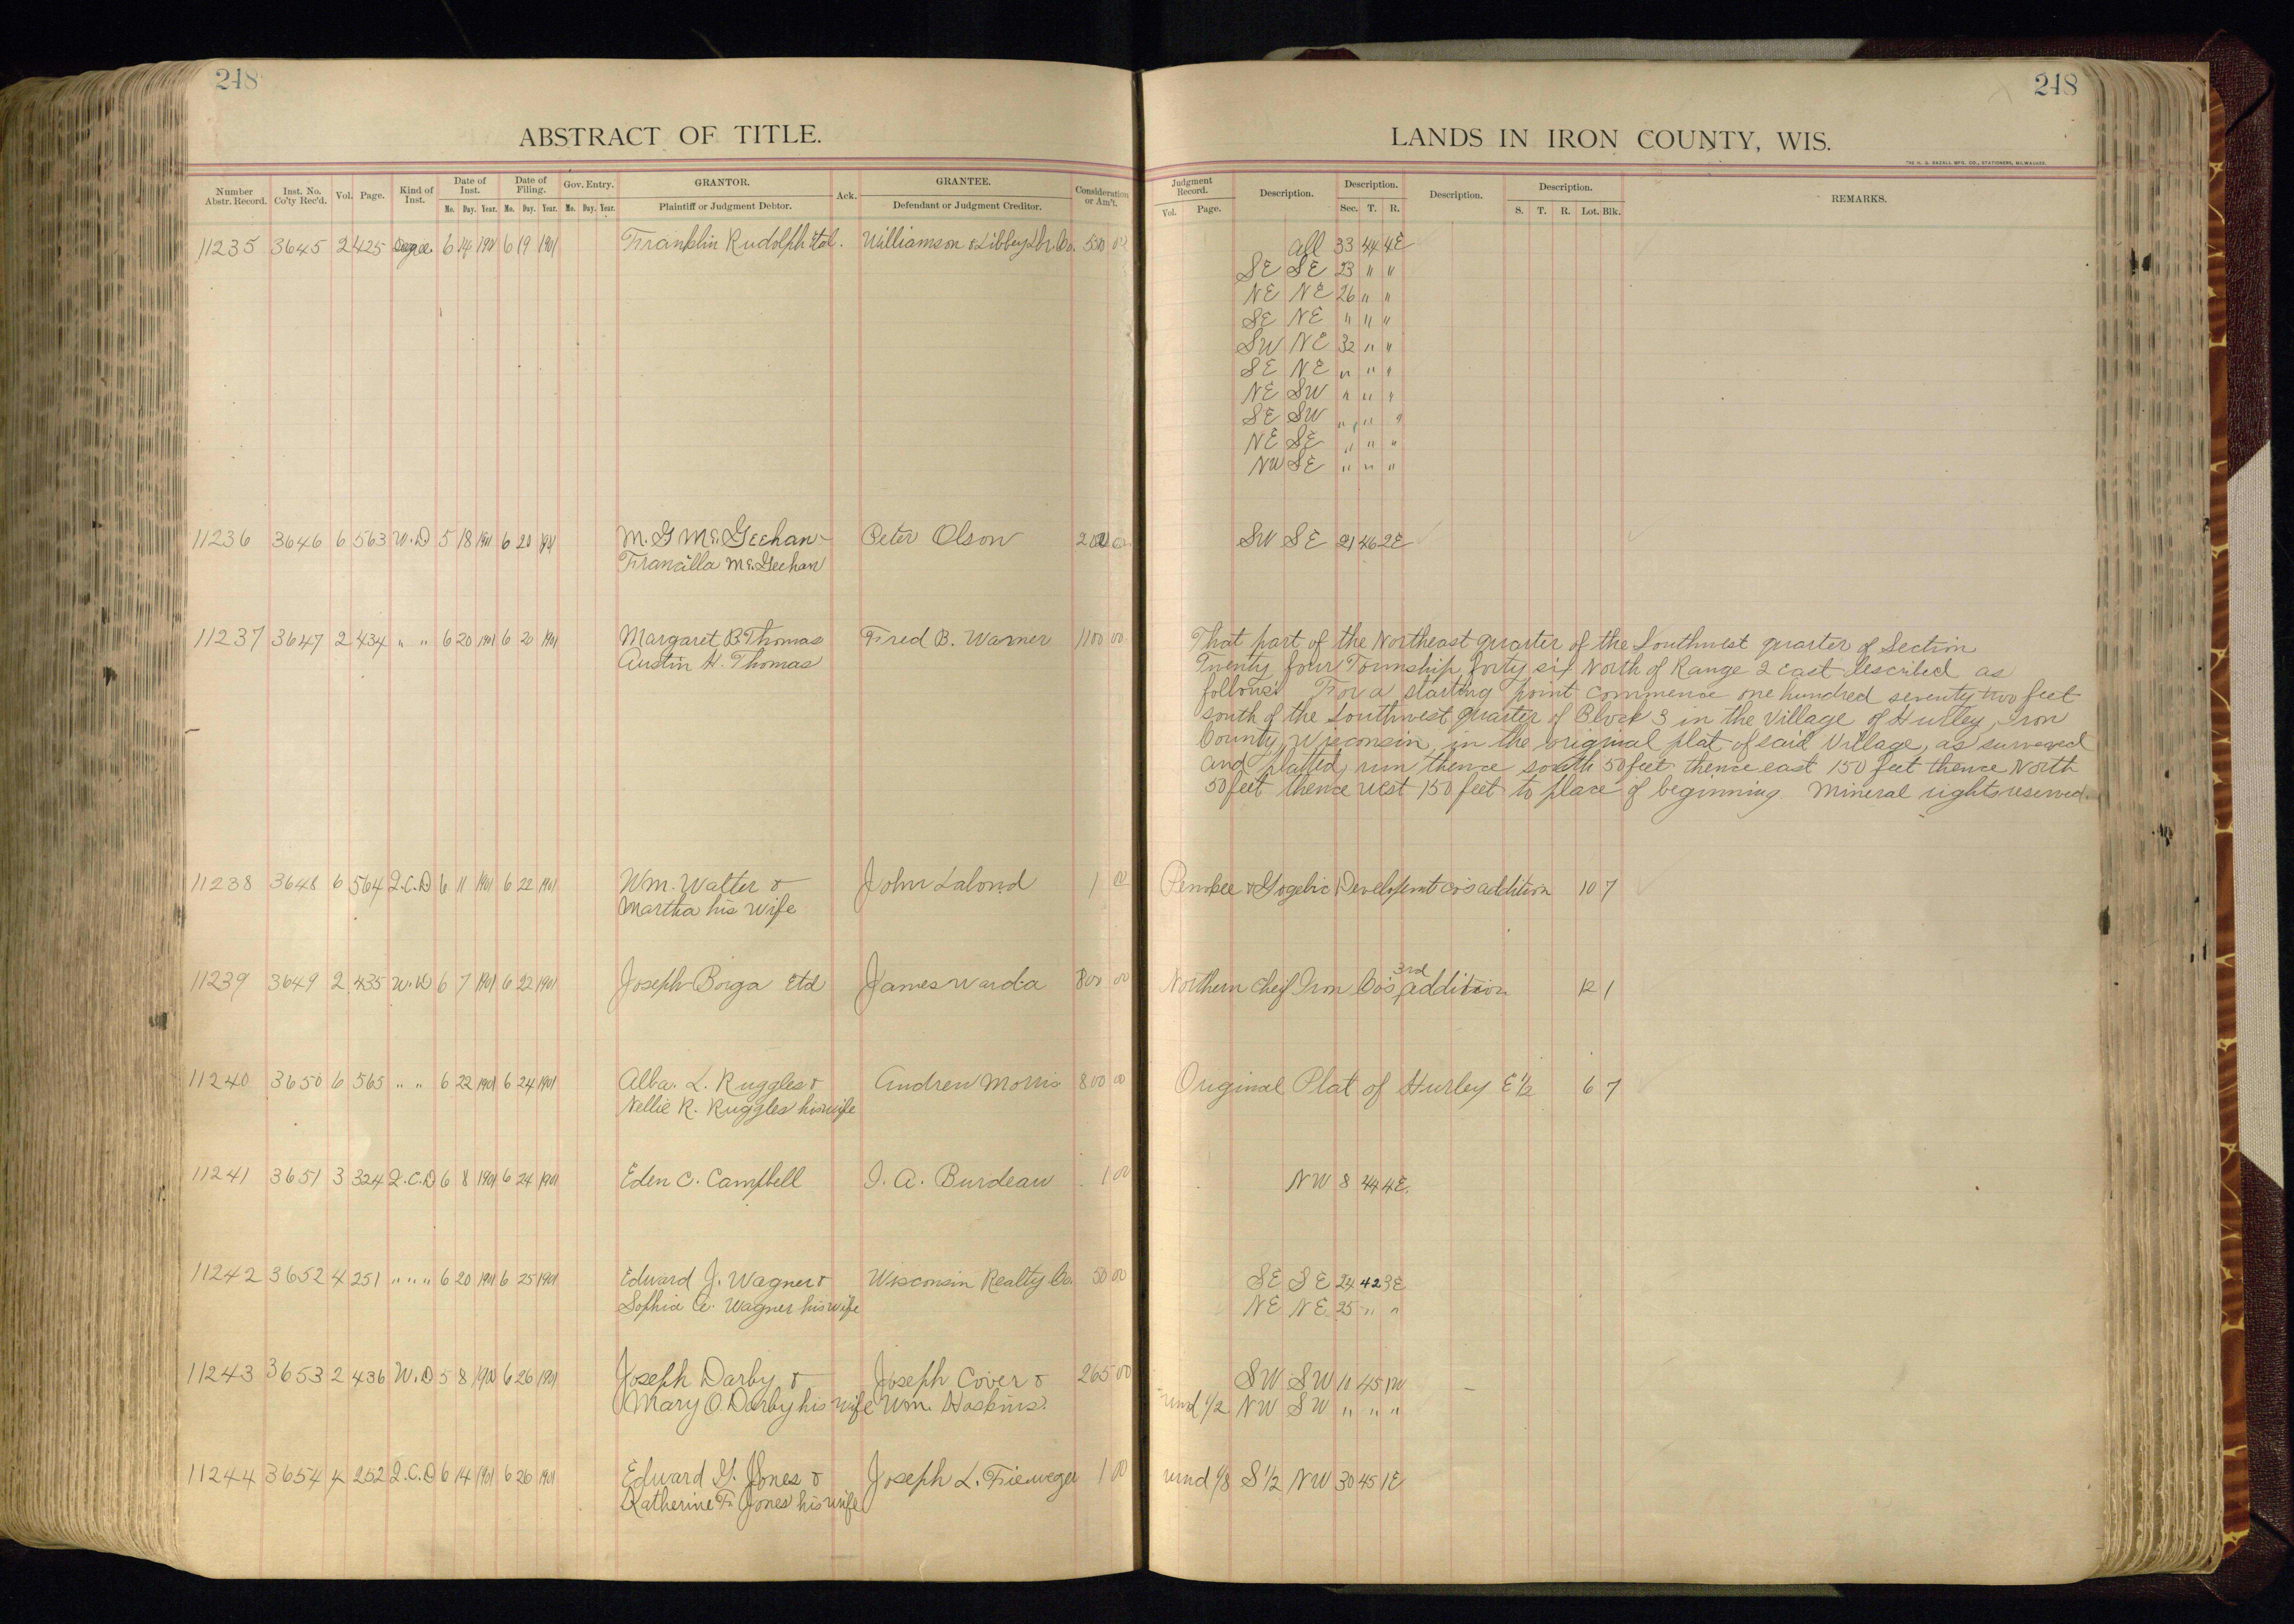 248
ABSTRACT OF TITLE.
Number Abstr. Record. Inst. No. Co'ty Rec'd. Vol. Page. Kind of Inst. Date of Inst. Mo. Day. Year. Date of Filing. Mo. Day. Year. Gov. Entry. Mo. Day. Year. GRANTOR. Plaintiff or Judgment Debtor. Ack. GRANTEE. Defendant or Judgment Creditor. Consideration or Am't.
11235 3645 2 425 6 19 1901 Franklin Rudolph Etal. Williamson & Libbey Lbr. Co.
11236 3646 6 563 W.D 5 18 1901 6 20 1901 M. G McGeehan Peter Olson
Francilla McGeehan
11237 3647 2 434 " " 6 20 1901 6 20 1901 Margaret B. Thomas Fred B. Warner 1100 00
Austin H. Thomas
11238 3648 6 564 Q.C.D 6 11 1901 6 22 1901 Wm. Walter & John Lalond 1 00
Martha his wife
11239 3649 2 435 W.D 6 7 1901 6 22 1901 Joseph Borga Etal James Warda 800 00
11240 3650 6 565 " " 6 22 1901 6 24 1901 Alba. L. Ruggles & Andrew Morris 800 00
Nellie R. Ruggles his wife
11241 3651 3 324 Q.C.D 6 8 1901 6 24 1901 Eden C. Campbell I. A. Burdeau 1 00
11242 3652 4 251 " " " 6 20 1901 6 25 1901 Edward J. Wagner & Wisconsin Realty Co. 50 00
Sophia A. Wagner his wife
11243 3653 2 436 W.D 5 8 6 26 1901 Joseph Darby & Joseph Cover & 265 00
Mary O. Darby his wife Wm. Hoskins.
11244 3654 4 252 Q.C.D 6 14 1901 6 26 1901 Edward G. Jones & Joseph L. Fieweger 1 00
Katherine F. Jones his wife
248
LANDS IN IRON COUNTY, WIS.
THE H. G. RAZALL MFG. CO., STATIONERS, MILWAUKEE.
Judgment Record. Vol. Page. Description. Description. Sec. T. R. Description. Description. S. T. R. Lot. Blk. REMARKS.
all 33 44 4E
SE SE 23 " "
NE NE 26 " "
SE NE " " "
SW NE 32 " "
SE NE " " "
NE SW " " "
SE SW " " "
NE SE " " "
NW SE " " "
SW SE 21 46 2E
That part of the Northeast quarter of the Southwest quarter of Section
Twenty four Township forty six North of Range 2 East described as
follows: For a starting point commence one hundred seventy two feet
south of the Southwest quarter of Block 3 in the Village of Hurley, Iron
County, Wisconsin, in the original plat of said Village, as surveyed
and platted, run thence south 50 feet thence east 150 feet thence North
50 feet thence west 150 feet to place of beginning. Mineral rights reserved.
Penokee & Gogebic Development Co's addition 10 7
Northern Cheif Iron Co's 3rd addition 12 1
Original Plat of Hurley E 1/2 6 7
NW 8 44 4E.
SE SE 24 42 3E
NE NE 25 " "
SW SW 10 45 1W
und 1/2 NW SW " " "
und 1/8 S 1/2 NW 30 45 1E